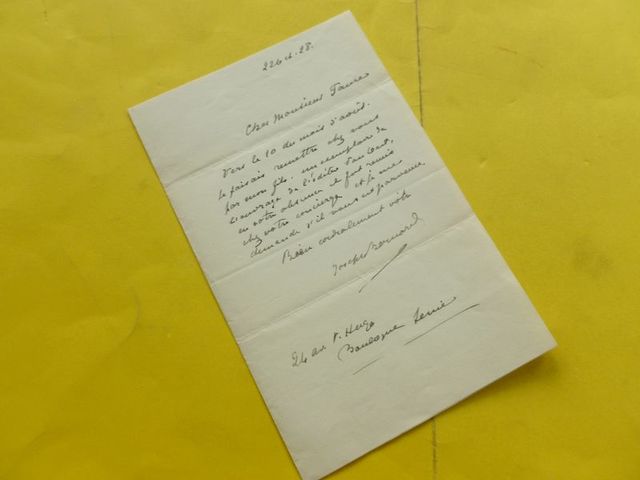 22 oct. 28.
Cher Monsieur Faure
Vers le 10 du mois d'août.
Je faisais remettre chez vous
par mon fils. un exemplaire de
l'ouvrage de l'éditeur
en votre absence il fut remis
chez votre concierge et je me
demande s'il vous est parvenu.
Bien cordialement votre
Joseph Bernard
24 av. V. Hugo
Boulogne Seine